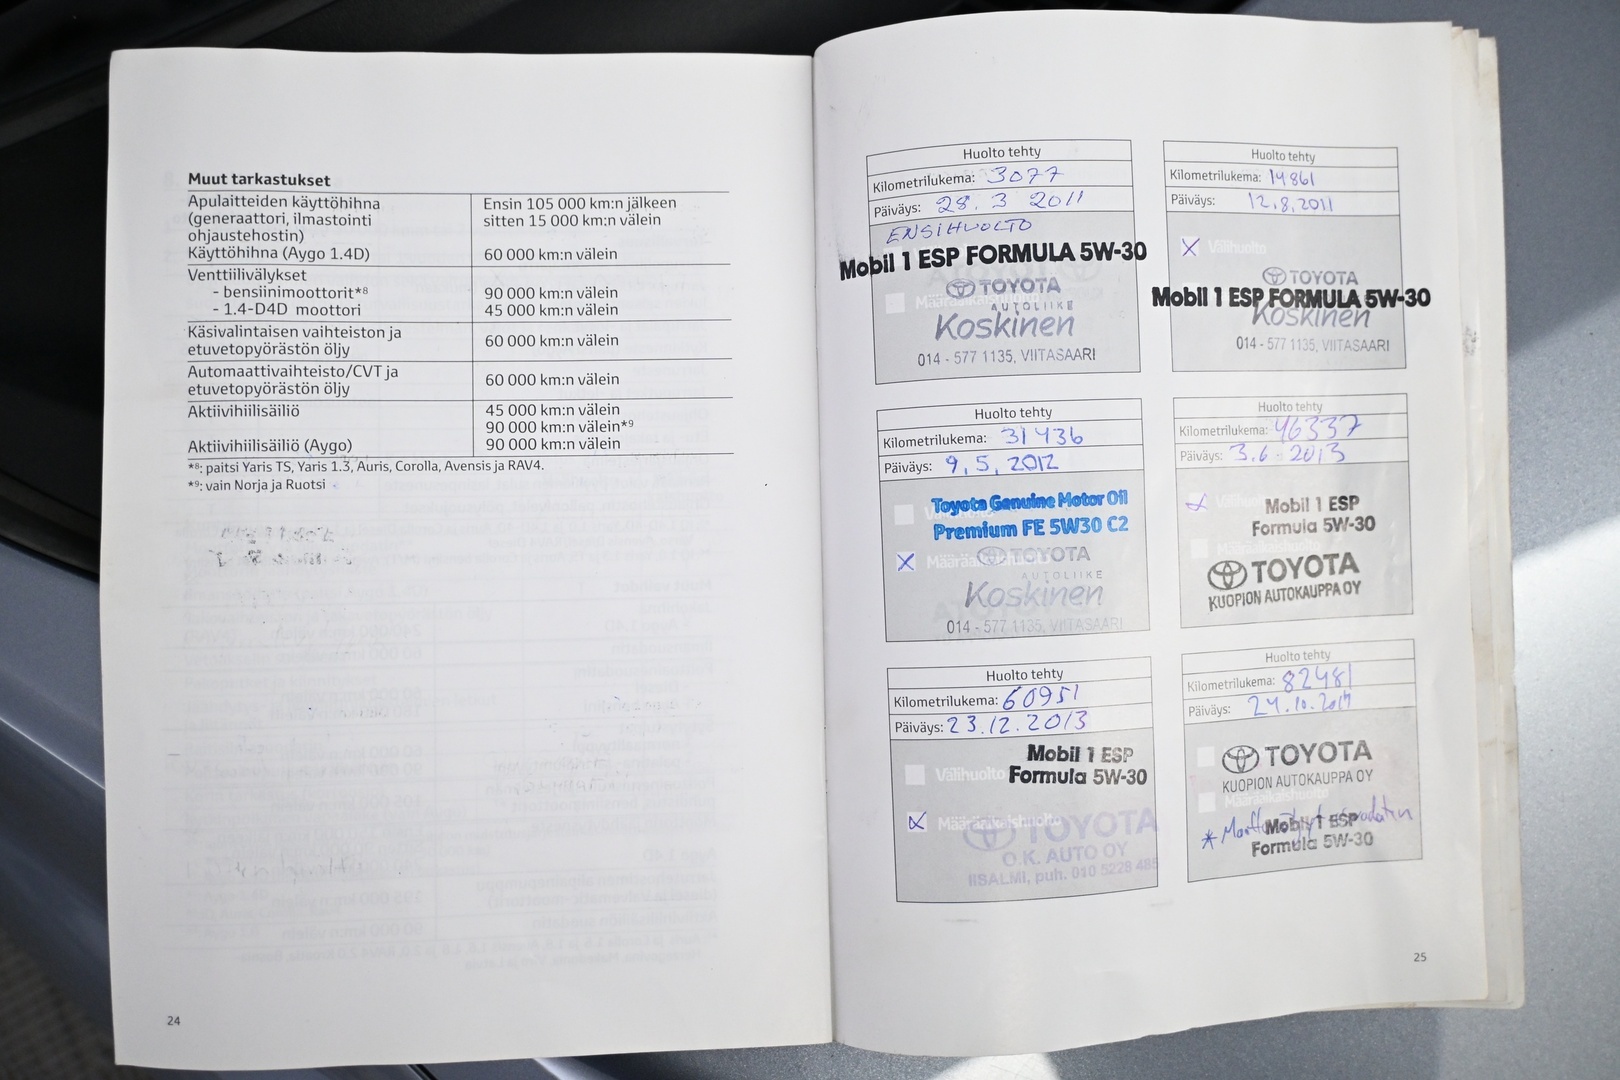 Muut tarkastukset
Apulaitteiden käyttöhihna
(generaattori, ilmastointi
ohjaustehostin)
Ensin 105 000 km:n jälkeen
sitten 15 000 km:n välein
Käyttöhihna (Aygo 1.4D) 60 000 km:n välein
Venttiilivälykset
- bensiinimoottorit*8 90 000 km:n välein
- 1.4-D4D moottori 45 000 km:n välein
Käsivalintaisen vaihteiston ja
etuvetopyörästön öljy
60 000 km:n välein
Automaattivaihteisto/CVT ja
etuvetopyörästön öljy
60 000 km:n välein
Aktiivihiilisäiliö 45 000 km:n välein
90 000 km:n välein*9
Aktiivihiilisäiliö (Aygo) 90 000 km:n välein
*8: paitsi Yaris TS, Yaris 1.3, Auris, Corolla, Avensis ja RAV4.
*9: vain Norja ja Ruotsi
24
Huolto tehty
Kilometrilukema: 3077
Päiväys: 28.3 2011
ENSIHUOLTO
Mobil 1 ESP FORMULA 5W-30
Määräaikaishuolto
TOYOTA
AUTOLIIKE
Koskinen
014 - 577 1135, VIITASAARI
Huolto tehty
Kilometrilukema: 14861
Päiväys: 12.8.2011
Välihuolto
TOYOTA
Mobil 1 ESP FORMULA 5W-30
Koskinen
014 - 577 1135, VIITASAARI
Huolto tehty
Kilometrilukema: 31436
Päiväys: 9.5.2012
Toyota Genuine Motor Oil
Premium FE 5W30 C2
Määräaikaishuolto
TOYOTA
AUTOLIIKE
Koskinen
014 - 577 1135, VIITASAARI
Huolto tehty
Kilometrilukema: 46337
Päiväys: 3.6-2013
Mobil 1 ESP
Formula 5W-30
Määräaikaishuolto
TOYOTA
KUOPION AUTOKAUPPA OY
Huolto tehty
Kilometrilukema: 60951
Päiväys: 23.12.2013
Mobil 1 ESP
Välihuolto Formula 5W-30
Määräaikaishuolto
TOYOTA
O.K. AUTO OY
IISALMI, puh. 010 5228 485
Huolto tehty
Kilometrilukema: 82481
Päiväys: 24.10.2014
TOYOTA
KUOPION AUTOKAUPPA OY
Määräaikaishuolto
Mobil 1 ESP
Formula 5W-30
25